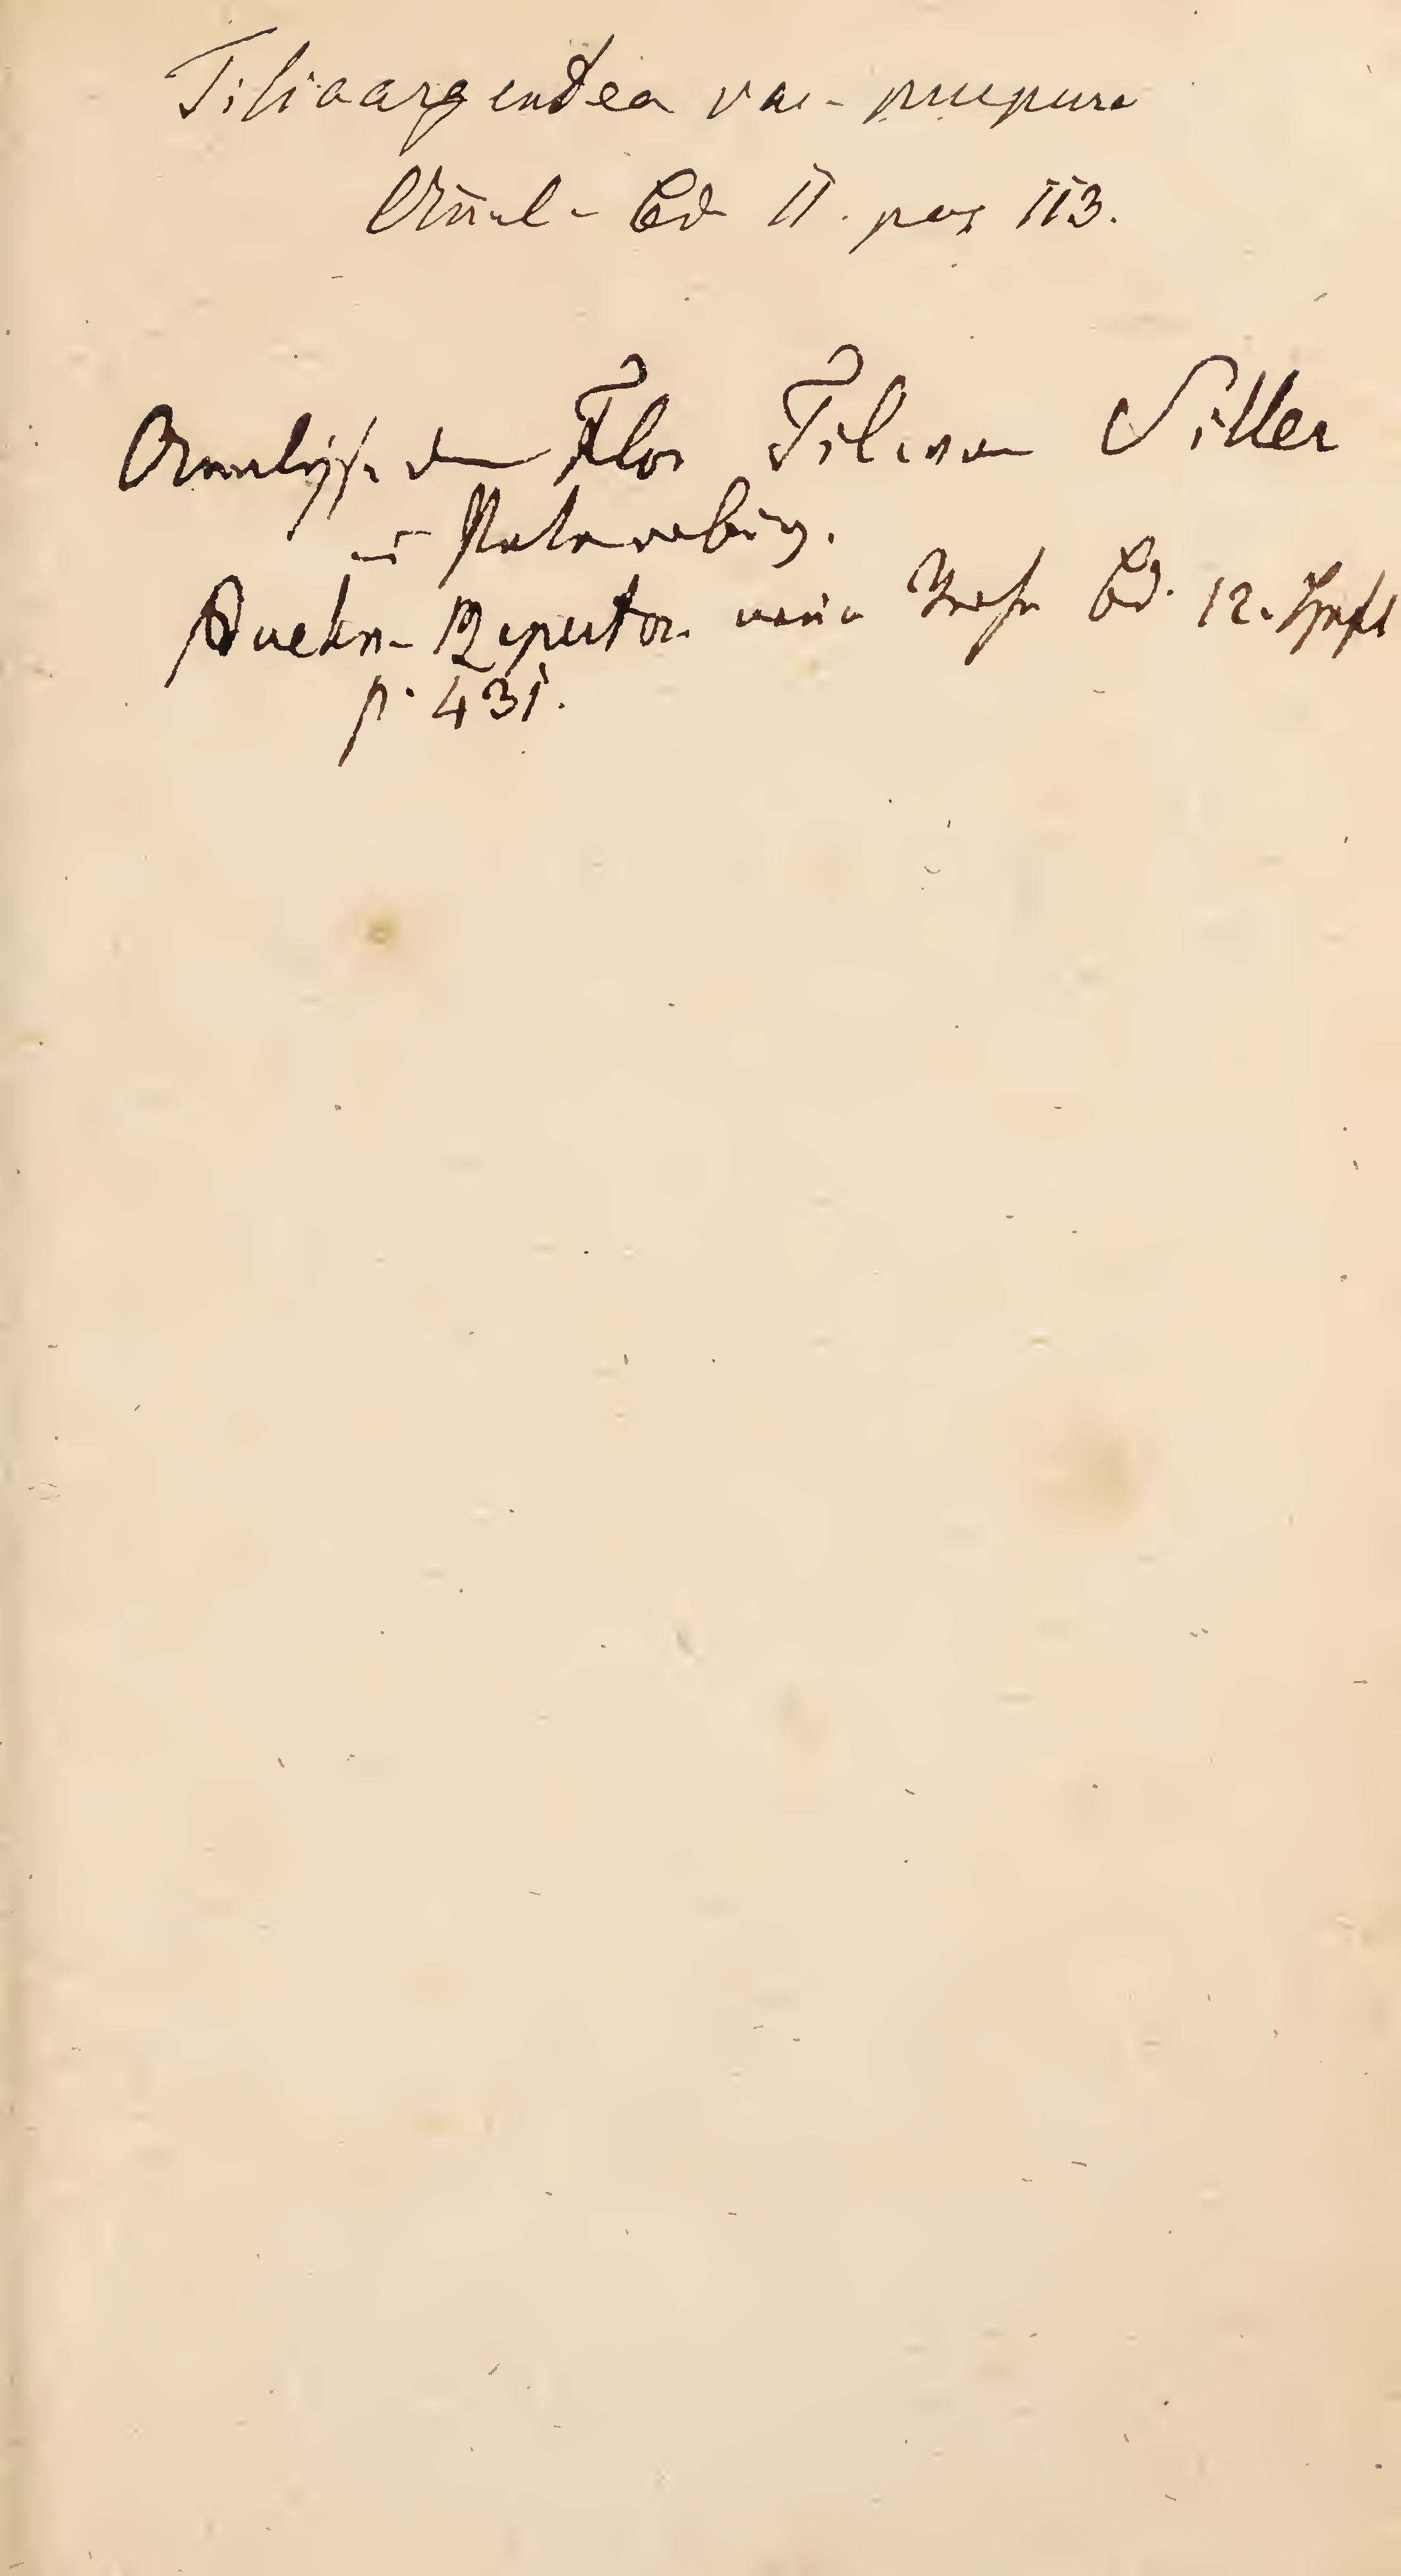 Tilia argentea var. purpura
Bd II. pag 113.
Analyse der Flor Tiliae von Siller
in Petersburg.
Buchn. Repertor. neue Reihe Bd. 12. Heft
p. 431.